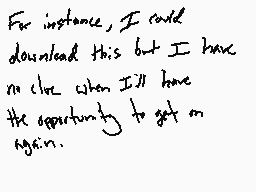 For instance, I could
download this but I have
no clue when I'll have
the opportunity to get on
again.